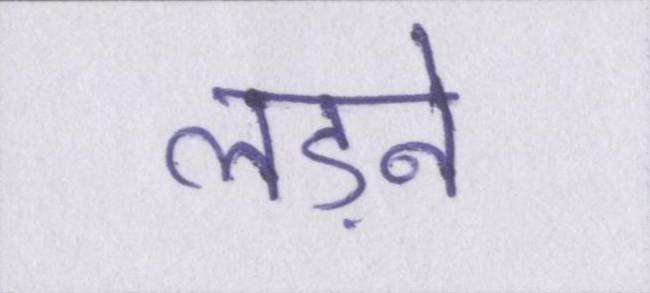 लड़ने